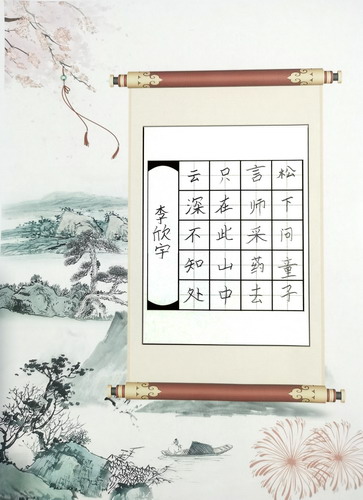 松下问童子
言师采药去
只在此山中
云深不知处
李欣宇